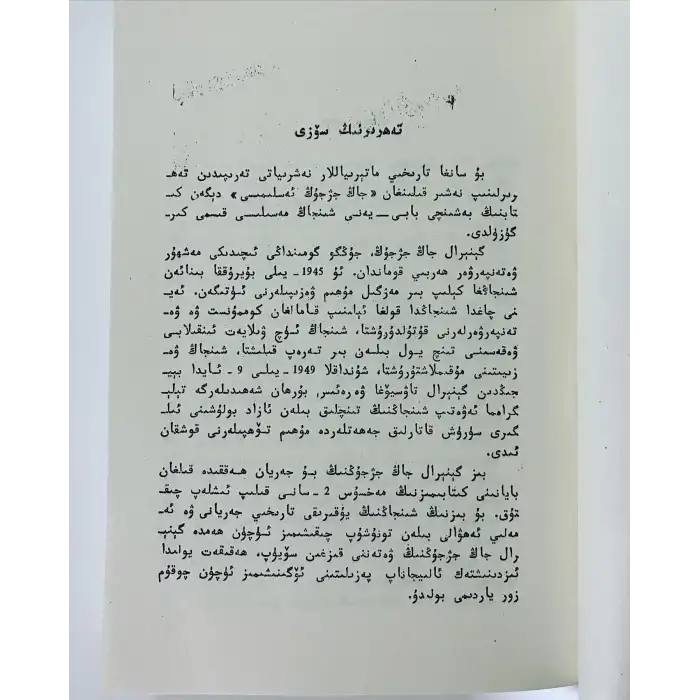 تەھرىرنىڭ سۆزى
بۇ سانغا تارىخىي ماتېرىياللار نەشرىياتى تەرىپىدىن تەھ-
رىرلىنىپ نەشر قىلىنغان «جاڭ جژجۇڭ ئەسلىمىسى» دېگەن كى-
تابنىڭ بەشىنچى بابى — يەنى شىنجاڭ مەسىلىسى قىسمى كىر-
گۈزۈلدى.
گېنېرال جاڭ جژجۇڭ، جۇڭگو گومىنداڭى ئىچىدىكى مەشھۇر
ۋەتەنپەرۋەر ھەربىي قوماندان. ئۇ 1945 - يىلى بۇيرۇققا بىنائەن
شىنجاڭغا كېلىپ بىر مەزگىل مۇھىم ۋەزىپىلەرنى ئۆتىگەن. ئەي-
نى چاغدا شىنجاڭدا قولغا ئېلىنىپ قامالغان كوممۇنىست ۋە ۋە-
تەنپەرۋەرلەرنى قۇتۇلدۇرۇشتا، شىنجاڭ ئۈچ ۋىلايەت ئىنقىلابى
ۋەقەسىنى تىنچ يول بىلەن بىر تەرەپ قىلىشتا، شىنجاڭ ۋە-
زىيىتىنى مۇقىملاشتۇرۇشتا، شۇنداقلا 1949 - يىلى 9 - ئايدا بېي-
جىڭدىن گېنېرال تاۋسىيۆغا ۋە رەئىس بۇرھان شەھىدىلەرگە تېلې-
گرامما ئەۋەتىپ شىنجاڭنىڭ تىنچلىق بىلەن ئازاد بولۇشىنى ئىل-
گىرى سۈرۈش قاتارلىق جەھەتلەردە مۇھىم تۆھپىلەرنى قوشقان
ئىدى.
بىز گېنېرال جاڭ جژجۇڭنىڭ بۇ جەريان ھەققىدە قىلغان
بايانىنى كىتابىمىزنىڭ مەخسۇس 2 - سانى قىلىپ ئىشلەپ چىق-
تۇق. بۇ بىزنىڭ شىنجاڭنىڭ يۇقىرىقى تارىخىي جەريانى ۋە ئە-
مەلىي ئەھۋالى بىلەن تونۇشۇپ چىقىشىمىز ئۈچۈن ھەمدە گېنې-
رال جاڭ جژجۇڭنىڭ ۋەتەننى قىزغىن سۆيۈپ، ھەقىقەت يولىدا
ئىزدىنىشتەك ئالىيجاناپ پەزىلىتىنى ئۆگىنىشىمىز ئۈچۈن چوقۇم
زور ياردىمى بولىدۇ.